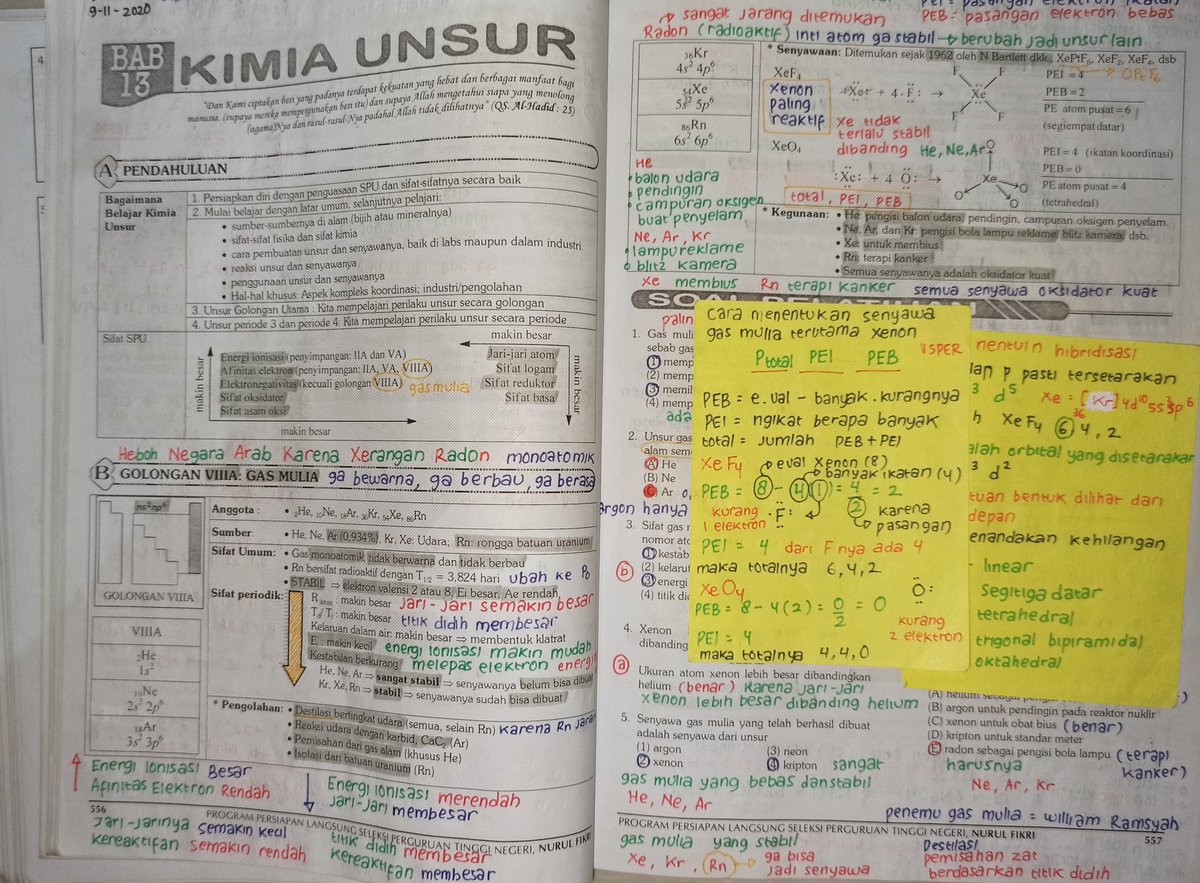 9-11-2020
BAB 13
KIMIA UNSUR
"Dan Kami ciptakan besi yang padanya terdapat kekuatan yang hebat dan berbagai manfaat bagi
manusia. (supaya mereka mempergunakan besi itu) dan supaya Allah mengetahui siapa yang menolong
(agama)Nya dan rasul-rasul-Nya padahal Allah tidak dilihatnya" (QS. Al-Hadid : 25)
A PENDAHULUAN
Bagaimana Belajar Kimia Unsur
1. Persiapkan diri dengan penguasaan SPU dan sifat-sifatnya secara baik
2. Mulai belajar dengan latar umum, selanjutnya pelajari:
• sumber-sumbernya di alam (bijih atau mineralnya)
• sifat-sifat fisika dan sifat kimia
• cara pembuatan unsur dan senyawanya, baik di labs maupun dalam industri.
• reaksi unsur dan senyawanya
• penggunaan unsur dan senyawanya
• Hal-hal khusus: Aspek kompleks koordinasi; industri/pengolahan
3. Unsur Golongan Utama : Kita mempelajari perilaku unsur secara golongan
4. Unsur periode 3 dan periode 4: Kita mempelajari perilaku unsur secara periode
Sifat SPU
makin besar
makin besar
Energi ionisasi (penyimpangan: IIA dan VA)
Afinitas elektron (penyimpangan: IIA, VA, VIIIA)
Elektronegativitas (kecuali golongan VIIIA) gas mulia
Sifat oksidator
Sifat asam oksi
makin besar
Jari-jari atom
Sifat logam
Sifat reduktor
Sifat basa
makin besar
Heboh Negara Arab Karena Xerangan Radon monoatomik
B GOLONGAN VIIIA: GAS MULIA ga bewarna, ga berbau, ga berasa
ns² np⁶
GOLONGAN VIIIA
VIIIA
₂He
1s²
₁₀Ne
2s² 2p⁶
₁₈Ar
3s² 3p⁶
Anggota : • ₂He, ₁₀Ne, ₁₈Ar, ₃₆Kr, ₅₄Xe, ₈₆Rn
Sumber: • He, Ne, Ar (0,934%), Kr, Xe: Udara; Rn: rongga batuan uranium
Sifat Umum: • Gas monoatomik tidak berwarna dan tidak berbau
• Rn bersifat radioaktif dengan T1/2 = 3,824 hari ubah ke Po
Sifat periodik: • STABIL ⇒ elektron valensi 2 atau 8, Ei besar, Ae rendah,
R atom : makin besar jari-jari semakin besar
makin besar titik didih membesar
Kelarutan dalam air: makin besar ⇒ membentuk klatrat
E : makin kecil energi ionisasi makin mudah
Kestabilan berkurang melepas elektron
He, Ne, Ar ⇒ sangat stabil ⇒ senyawanya belum bisa dibuat
Kr, Xe, Rn ⇒ stabil ⇒ senyawanya sudah bisa dibuat
* Pengolahan: • Destilasi bertingkat udara (semua, selain Rn) karena Rn
• Reaksi udara dengan karbid, CaC₂ (Ar)
• Pemisahan dari gas alam (khusus He)
• Isolasi dari batuan uranium (Rn)
Energi Ionisasi Besar
Afinitas Elektron Rendah
Energi ionisasi merendah
Jari-jari membesar
556
PROGRAM PERSIAPAN LANGSUNG SELEKSI PERGURUAN TINGGI NEGERI, NURUL FIKRI
Jari-jarinya semakin kecil
kereaktifan semakin rendah
titik didih membesar
kereaktifan membesar
sangat jarang ditemukan
PEB = pasangan elektron bebas
Radon (radioaktif) inti atom ga stabil → berubah jadi unsur lain
₃₆Kr
4s² 4p⁶
₅₄Xe
5s² 5p⁶
₈₆Rn
6s² 6p⁶
* Senyawaan: Ditemukan sejak 1962 oleh N Bartlett dkk., XePtF₆, XeF₂, XeF₄, dsb
XeF₄
xenon
paling
reaktif
Xe + 4 F: →
F F Xe F F
PEI = 4
PEB = 2
PE atom pusat = 6
(segiempat datar)
Xe tidak
terlalu stabil
dibanding He, Ne, Ar
XeO₄
:Xe: + 4 O: →
O Xe O O O
PEI = 4 (ikatan koordinasi)
PEB = 0
PE atom pusat = 4
(tetrahedral)
total, PEI, PEB
He
• balon udara
• pendingin
• campuran oksigen
buat penyelam
Ne, Ar, Kr
• lampu reklame
• blitz kamera
* Kegunaan: • He: pengisi balon udara, pendingin, campuran oksigen penyelam.
• Ne, Ar, dan Kr: pengisi bola lampu reklame, blitz kamera, dsb.
• Xe: untuk membius
• Rn: terapi kanker
• Semua senyawanya adalah oksidator kuat
Xe membius Rn terapi kanker semua senyawa oksidator kuat
SOAL PELATIHAN
1. Gas muli
sebab gas
(1) memp
(2) memp
(3) memil
(4) memp
2. Unsur gas
alam sem
(A) He
(B) Ne
(C) Ar
3. Sifat gas
nomor ato
(1) kestab
(2) kelaru
(3) energi
(4) titik di
(b)
4. Xenon
dibanding
(a)
Ukuran atom xenon lebih besar dibandingkan
helium (benar) karena jari-jari
xenon lebih besar dibanding helium
5. Senyawa gas mulia yang telah berhasil dibuat
adalah senyawa dari unsur
(1) argon (3) neon
(2) xenon (4) kripton
sangat
gas mulia yang bebas dan stabil
He, Ne, Ar
cara menentukan senyawa
gas mulia terutama xenon
Ptotal PEI PEB
VSPER
PEB = e.val - banyak.kurangnya
PEI = ngikat berapa banyak
total = jumlah PEB + PEI
XeF₄
eval xenon (8)
banyak ikatan (4)
PEB = 8 - 4(1) = 4 = 2
2
kurang
1 elektron
F:
karena
pasangan
PEI = 4 dari F nya ada 4
maka totalnya 6,4,2
XeO₄
O:
PEB = 8 - 4(2) = 0/2 = 0
kurang
2 elektron
PEI = 4
maka totalnya 4,4,0
nentuin hibridisasi
dan p pasti tersetarakan
³ d⁵ Xe = [Kr] 4d¹⁰ 5s² 5p⁶
36
XeF₄ 6,4,2
alah orbital yang disetarakan
³ d²
tuan bentuk dilihat dari
depan
enandakan kehilangan
- linear
segitiga datar
tetrahedral
trigonal bipiramidal
oktahedral
(B) argon untuk pendingin pada reaktor nuklir
(C) xenon untuk obat bius (benar)
(D) kripton untuk standar meter
(E) radon sebagai pengisi bola lampu (terapi
kanker)
harusnya
Ne, Ar, Kr
penemu gas mulia = william Ramsyah
PROGRAM PERSIAPAN LANGSUNG SELEKSI PERGURUAN TINGGI NEGERI, NURUL FIKRI
557
gas mulia yang stabil
Xe, Kr, Rn → ga bisa
jadi senyawa
Destilasi
pemisahan zat
berdasarkan titik didih